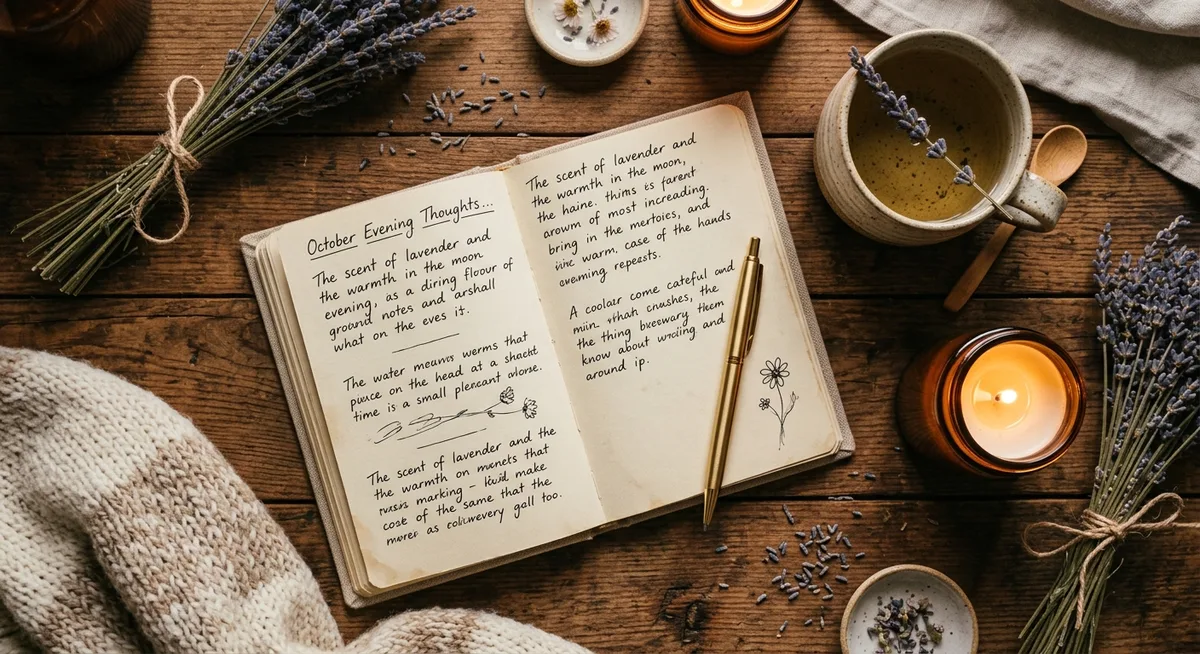 October Evening Thoughts...
The scent of lavender and
the warmth in the moon
evening, as a diring flouur of
ground notes and arshall
what on the eves it.
The water means werms that
puace on the head at a shacht
time is a small pleasant alorse.
The scent of lavender and the
the warmth on munets that
marking - kluid make
cost of the same that the
murer as coliuwevery gall too.
The scent of lavender and
the warmth in the moon,
the haine. thims is farent
arowm of most increading.
bring in the mertoies, and
warm. case of the hands
evening repests.
A coolar come cateful and
min. what cnushes, the
the thing bxewary them
know about wrding and
around ip.